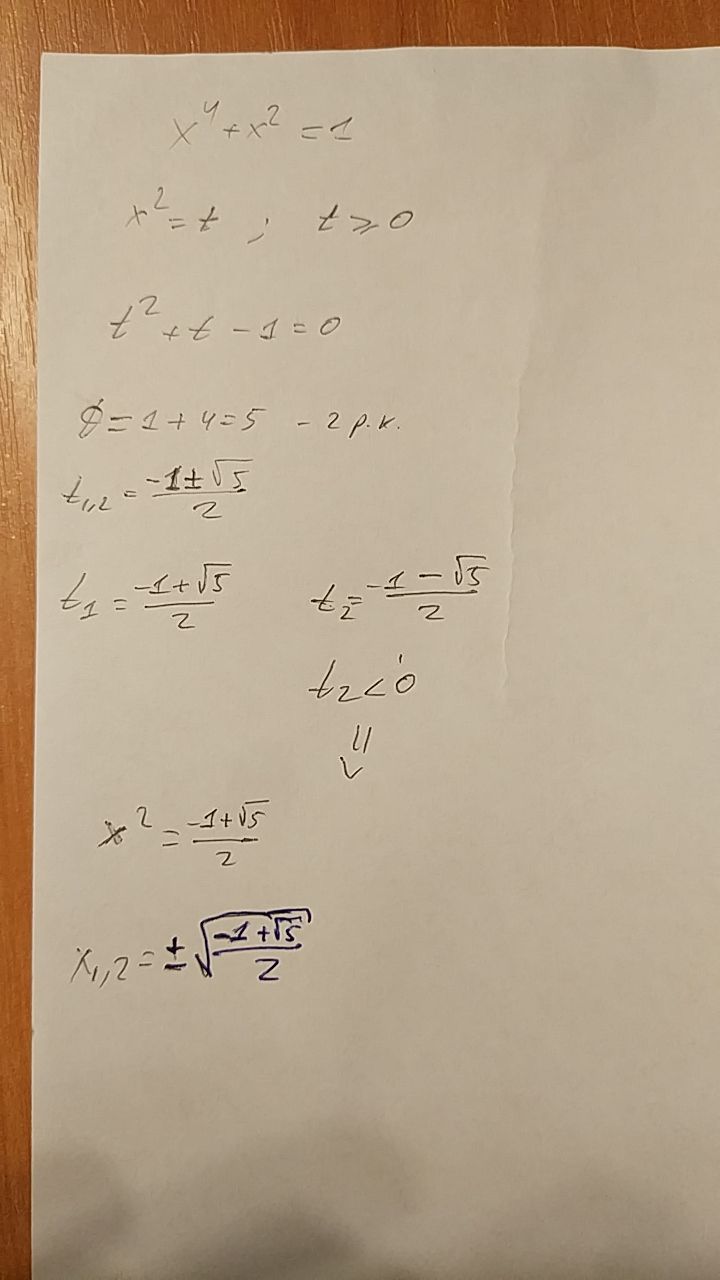 x⁴+x² = 1
x² = t ; t ⩾ 0
t² + t - 1 = 0
D = 1 + 4 = 5 - 2 р.к.
t₁,₂ = (-1 ± √5)/2
t₁ = (-1+√5)/2 t₂ = (-1 - √5)/2
t₂ < 0
⇓
x² = (-1+√5)/2
x₁,₂ = ± √((-1+√5)/2)